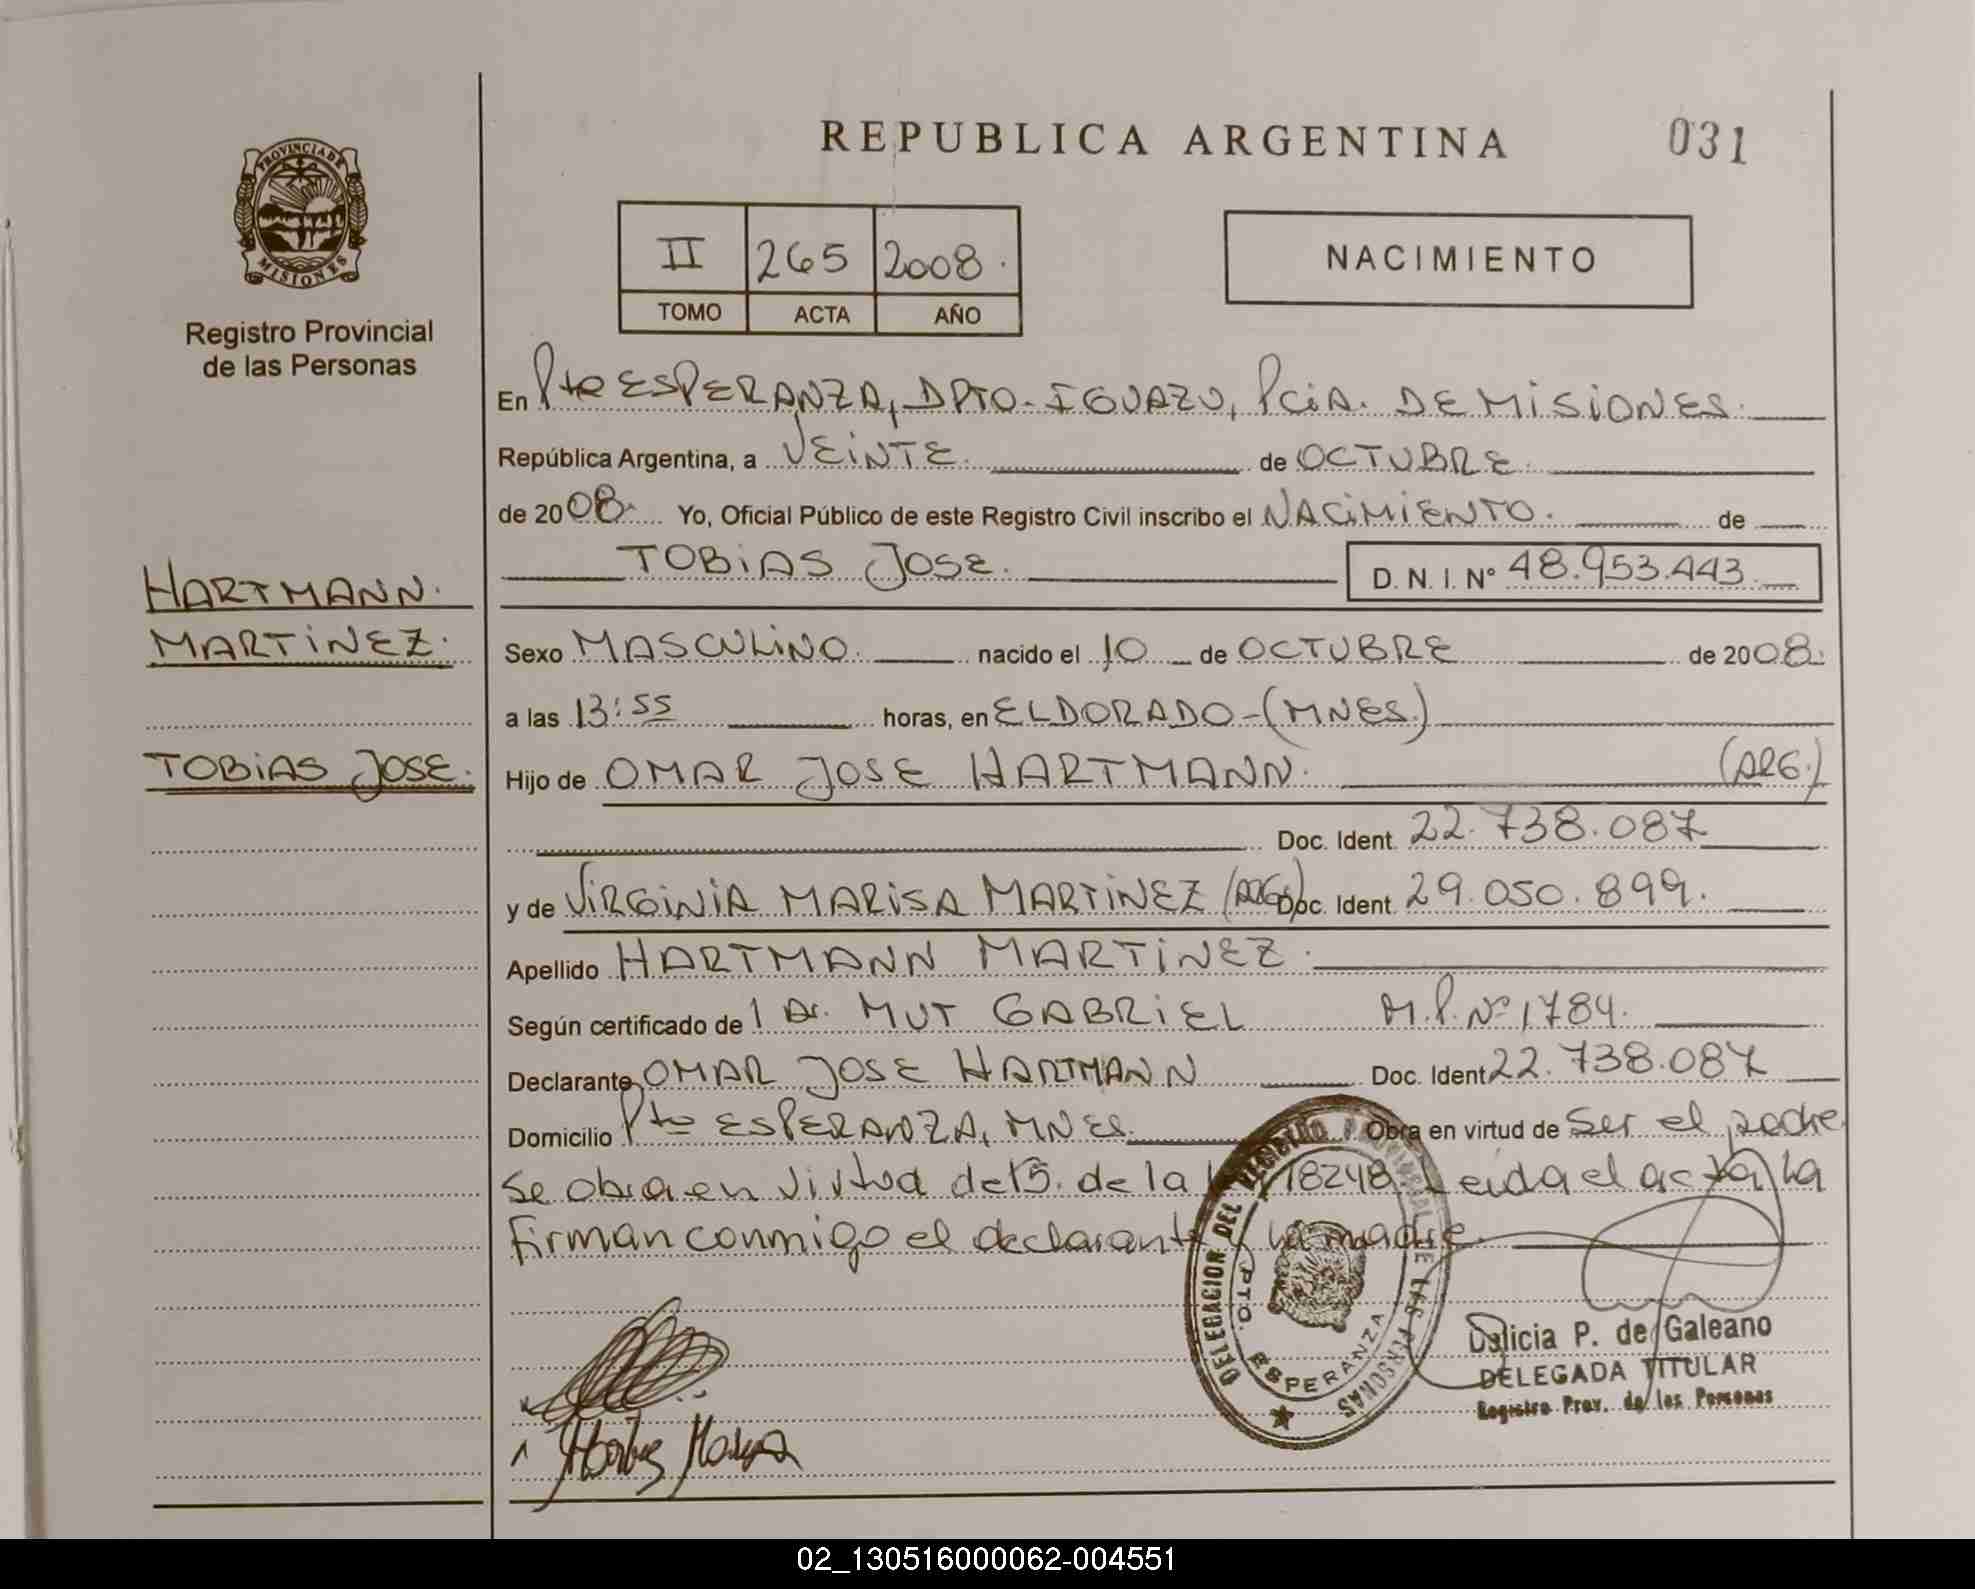 REPUBLICA ARGENTINA
031
PROVINCIA DE
MISIONES
Registro Provincial
de las Personas
II 265 2008.
TOMO ACTA AÑO
NACIMIENTO
En Pto ESPERANZA, DPTO. IGUAZU, PciA. DE MISIONES.
República Argentina, a VEINTE. de OCTUBRE.
de 2008. Yo, Oficial Público de este Registro Civil inscribo el NACIMIENTO. de
TOBIAS JOSE. D. N. I. N° 48.953.443.
HARTMANN.
MARTINEZ.
TOBIAS JOSE.
Sexo MASCULINO. nacido el 10 de OCTUBRE de 2008.
a las 13:55 horas, en ELDORADO-(MNES.)
Hijo de OMAR JOSE HARTMANN. (ARG.)
Doc. Ident. 22.738.087
y de VIRGINIA MARISA MARTINEZ (ARG.) Doc. Ident. 29.050.899.
Apellido HARTMANN MARTINEZ.
Según certificado de 1 Dr. MUT GABRIEL M.P. N° 1784.
Declarante OMAR JOSE HARTMANN Doc. Ident 22.738.087
Domicilio Pto ESPERANZA, MNES. Obra en virtud de ser el padre
se obra en virtud del 5. de la 18248. Leida el acta la
firman conmigo el declarante y la madre.
DELEGACION DEL REGISTRO PROVINCIAL DE LAS PERSONAS
PTO. ESPERANZA
Dalicia P. de Galeano
DELEGADA TITULAR
Registro Prov. de las Personas
02_130516000062-004551